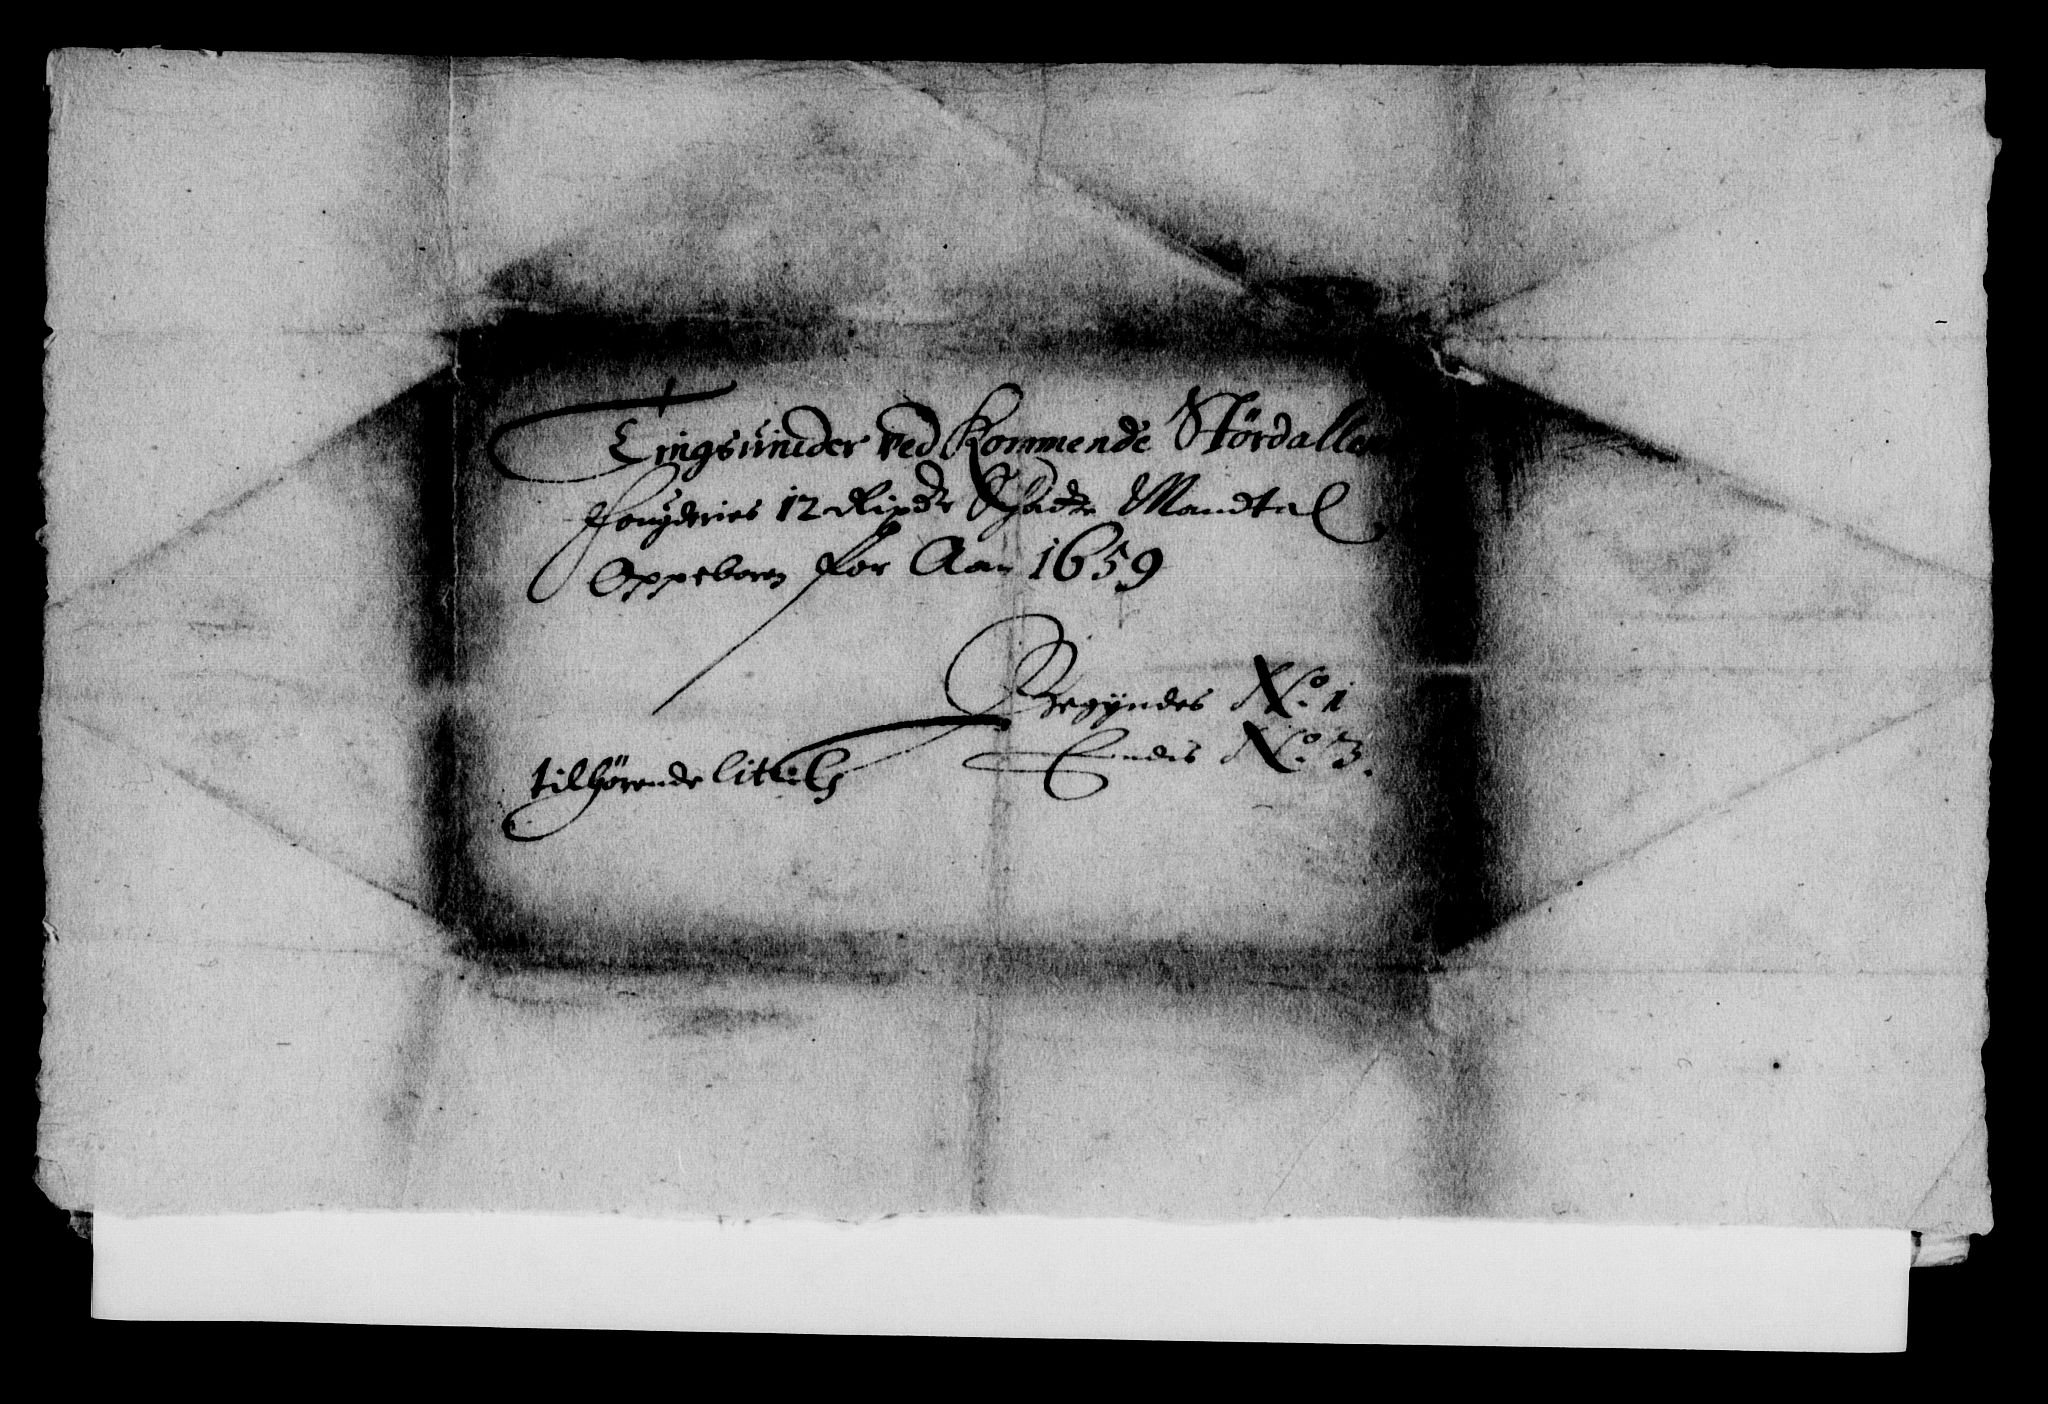 Tingsuinider ved Kommende Størdallens
fougderies 12 Rixdr Schadtz Mandtal
Oppeboren for Aar 1659
Begyndes No. 1
Endis No. 3.
tilhørende